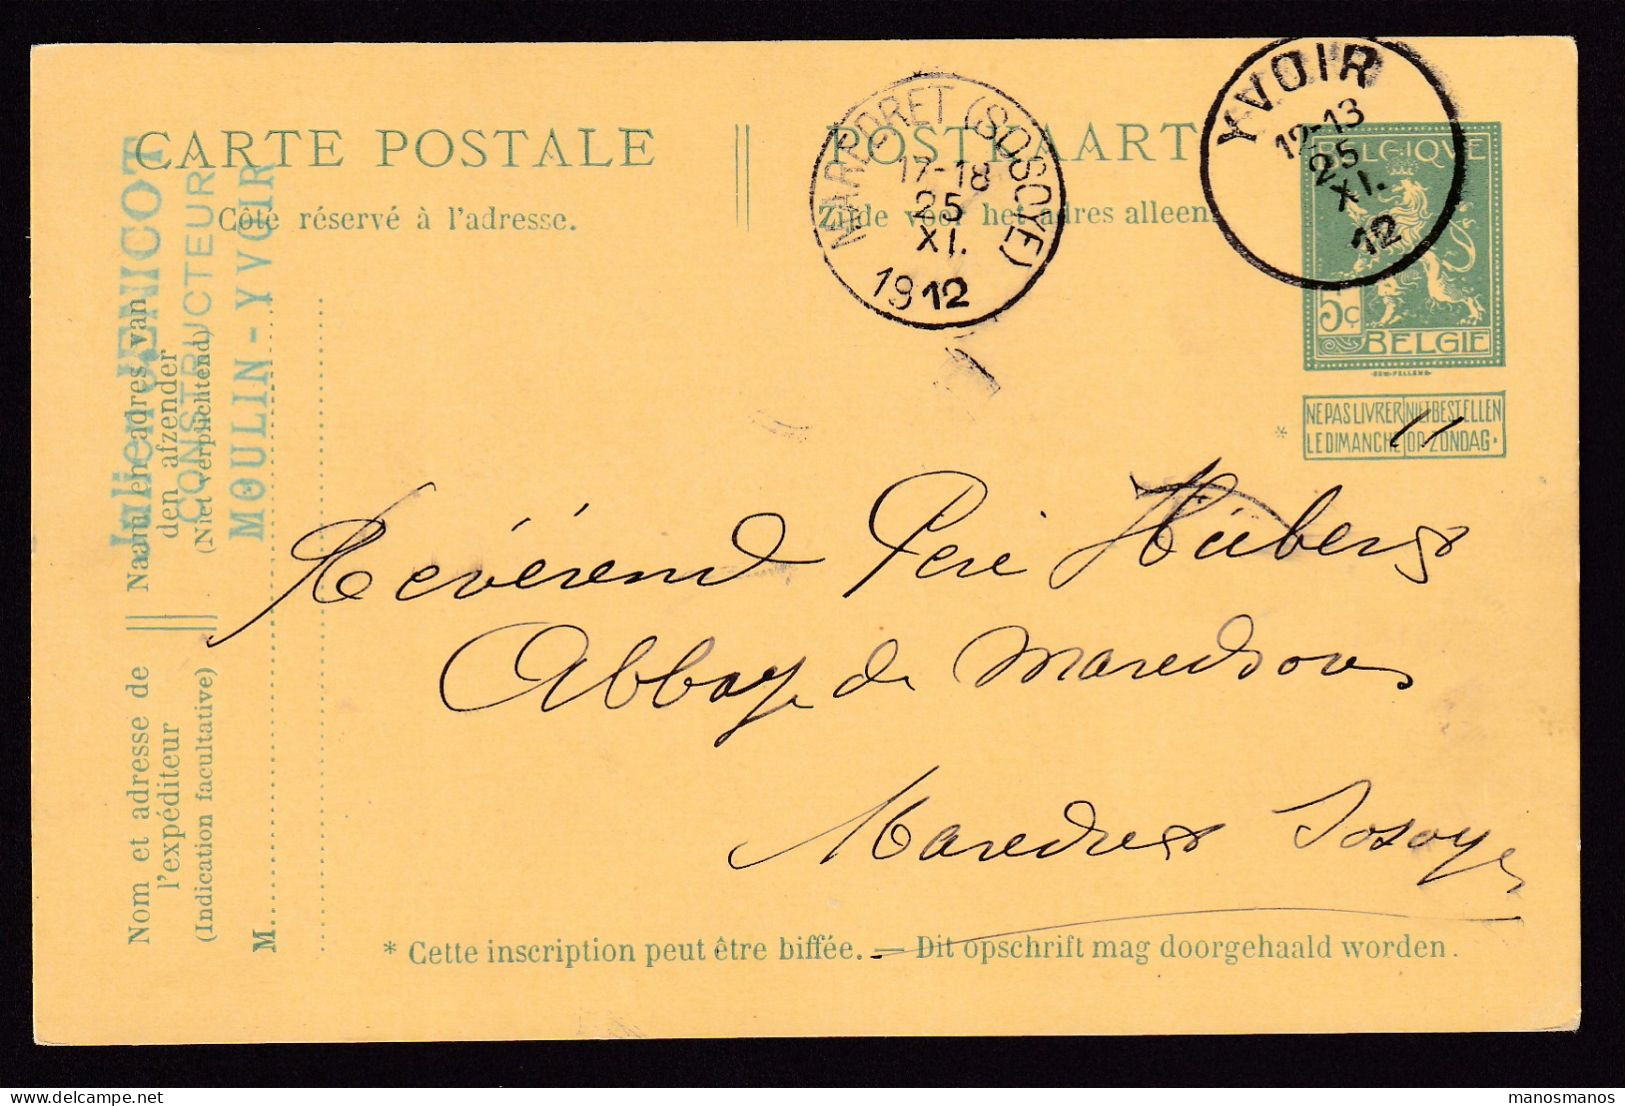 CARTE POSTALE
Côté réservé à l'adresse.
POSTKAART
Zijde voor het adres alleen
MAREDRET (SOSOYE)
17-18
25
XI.
1912
YVOIR
12-13
25
XI.
12
BELGIQVE
5c
BELGIE
NE PAS LIVRER NIET BESTELLEN
LE DIMANCHE OP ZONDAG.
*
Julien JENICOT
CONSTRUCTEUR
MOULIN-YVOIR
Naam en adres van
den afzender
(Niet verplichtend)
Nom et adresse de
l'expéditeur
(Indication facultative)
M.
Révérend Père Hubert
Abbaye de Maredsous
Maredret Sosoye
* Cette inscription peut être biffée. — Dit opschrift mag doorgehaald worden.
manosmanos